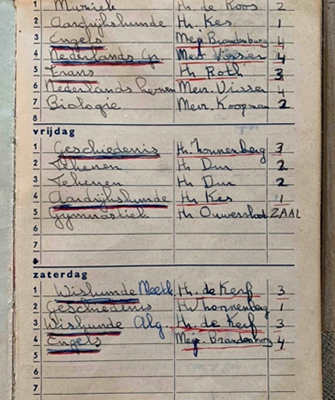 1 Muziek Hr. de Koos 2
2 Aardrijkskunde Hr. Kes 1
3 Engels Mej. Brandenburg 4
4 Nederlands Mevr. Visser 4
5 Frans Hr. Roth 3
6 Nederlands Mevr. Visser 4
7 Biologie Mevr. Koopman 2
8
vrijdag
1 Geschiedenis Hr. Thonnenberg 3
2 Tekenen Hr. Dur 2
3 Tekenen Hr. Dur 2
4 Aardrijkskunde Hr. Kes 1
5 Gymnastiek Hr. Ouwersloot ZAAL
6
7
8
zaterdag
1 Wiskunde Meetk. Hr. de Kerf 3
2 Geschiedenis Hr. Thonnenberg 1
3 Wiskunde Alg. Hr. de Kerf 3
4 Engels Mej. Brandenburg 4
5
6
7